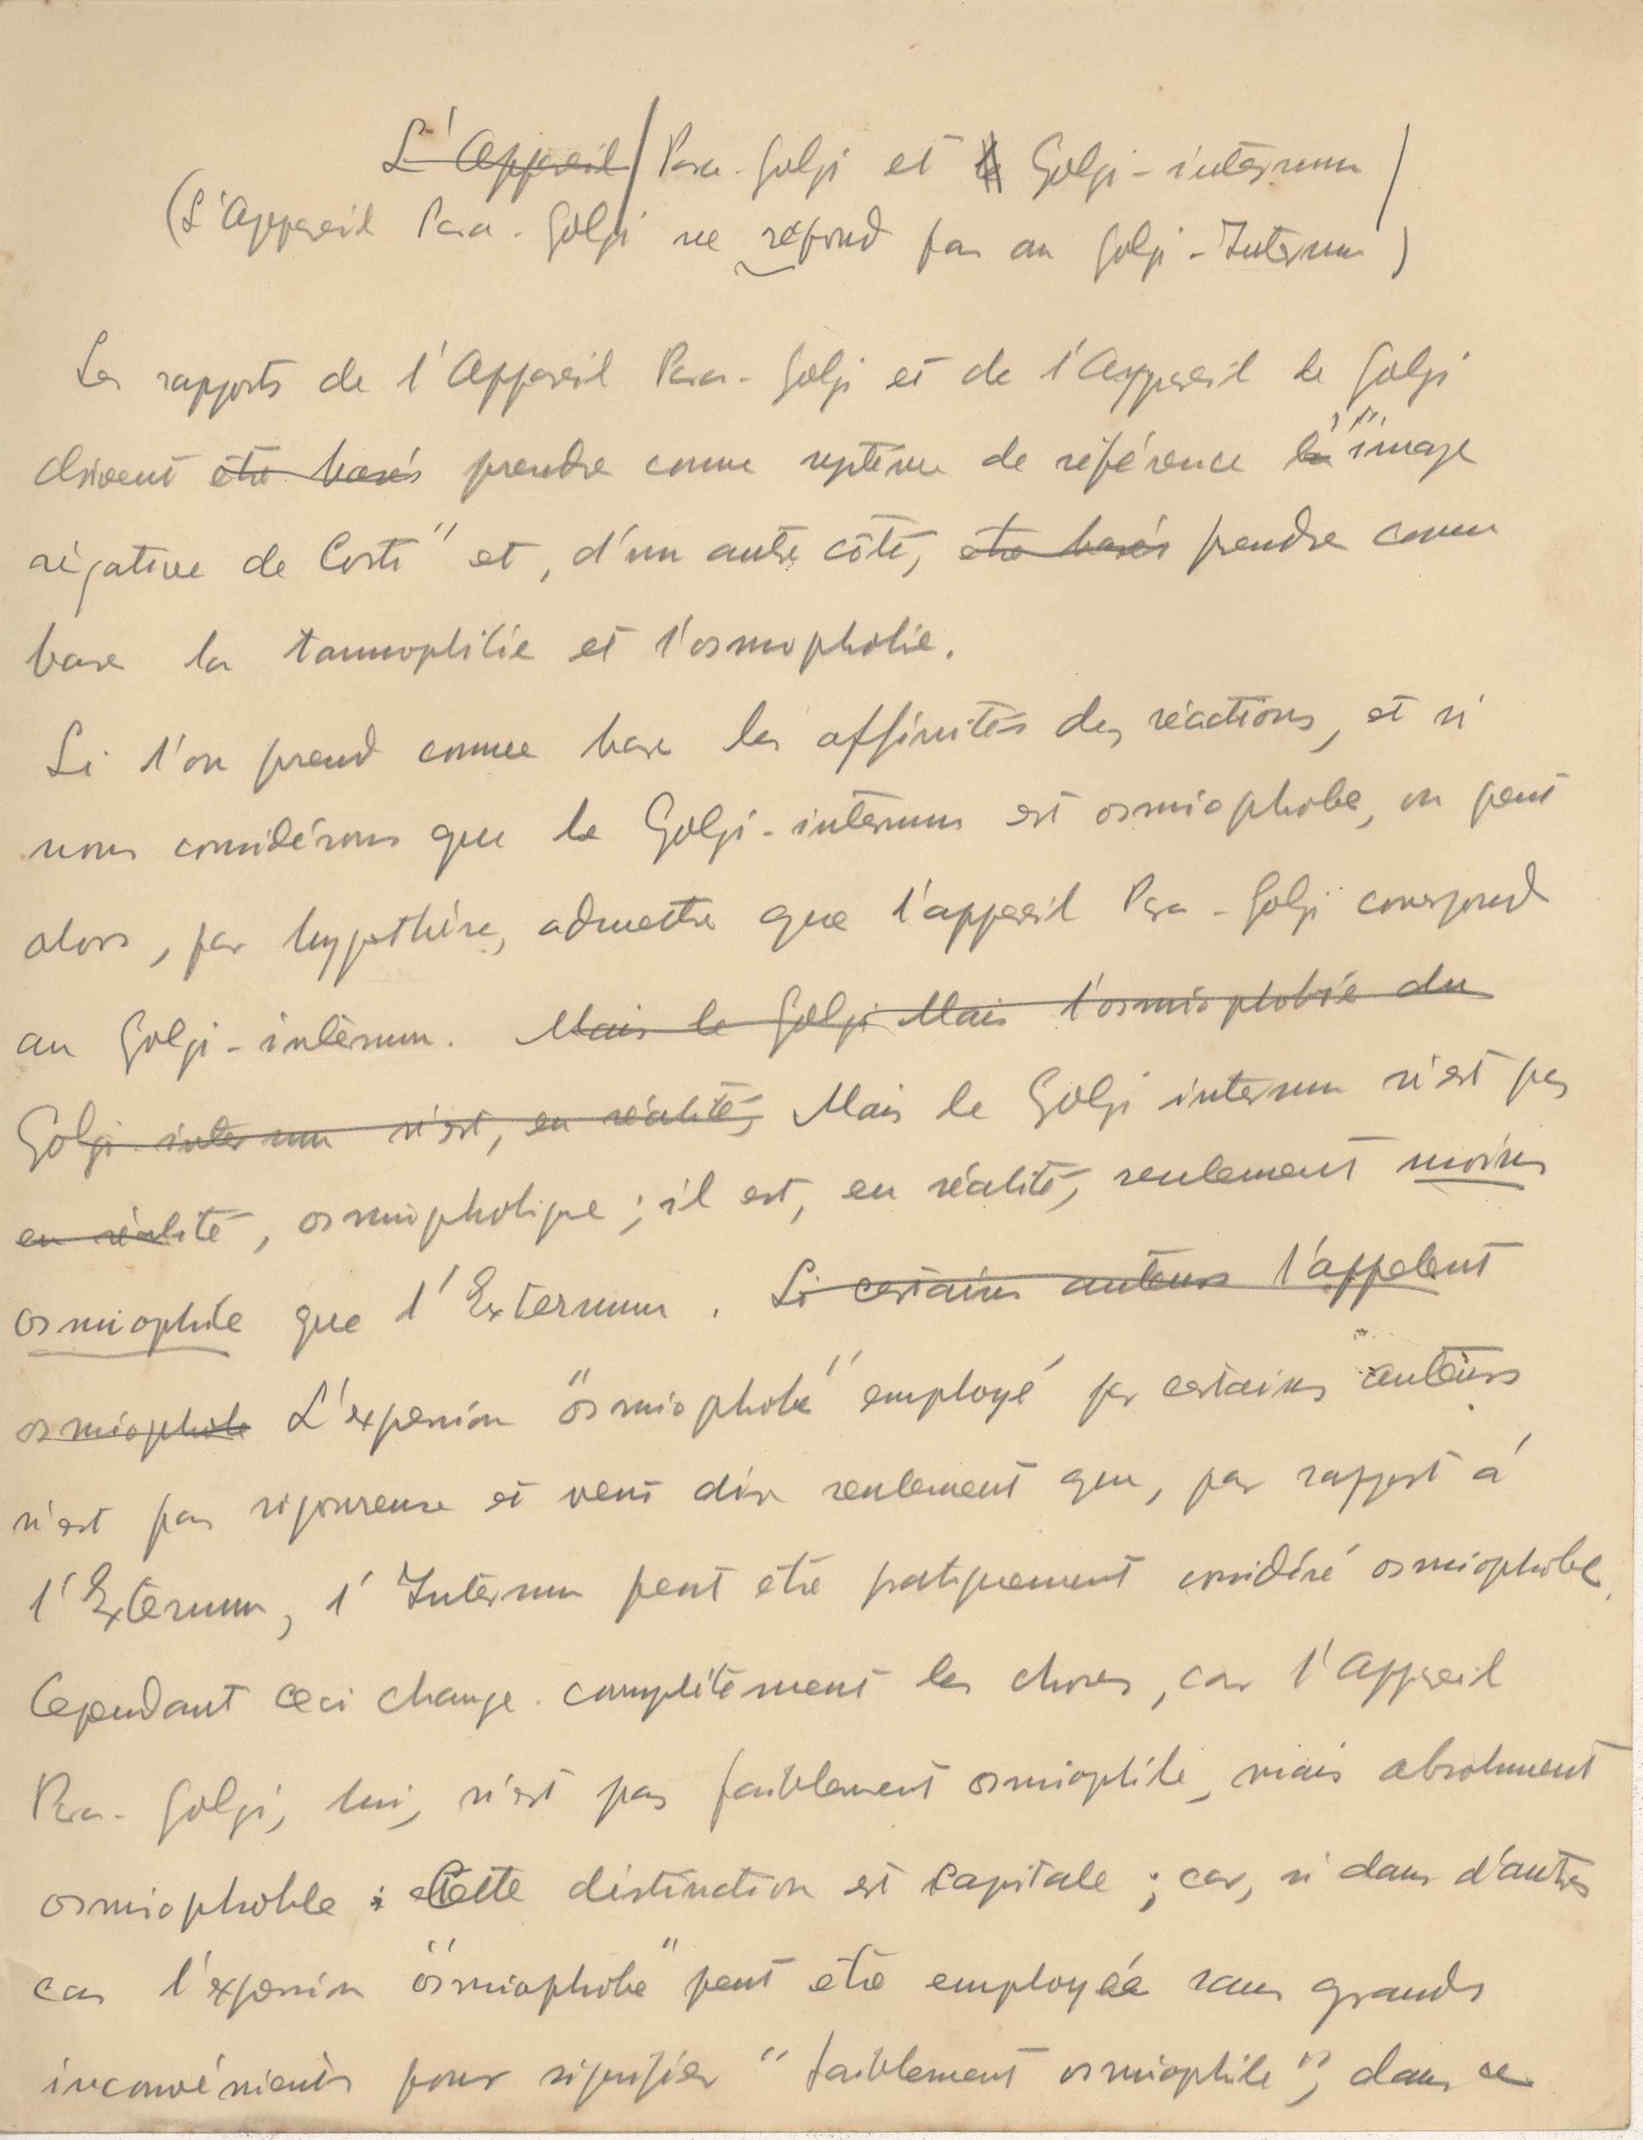 L'Appareil Para-Golgi et Golgi-internum
(L'Appareil Para-Golgi ne répond pas au Golgi-Internum)
Les rapports de l'Appareil Para-Golgi et de l'Appareil de Golgi
doivent être basés prendre comme système de référence la l'"image
négative de Corti" et, d'un autre côté, être basés prendre comme
base la tannophilie et l'osmiophobie.
Si l'on prend comme base les affinités des réactions, et si
nous considérons que le Golgi-internum est osmiophobe, on peut
alors, par hypothèse, admettre que l'appareil Para-Golgi correspond
au Golgi-internum. Mais le Golgi Mais l'osmiophobie du
Golgi-internum n'est, en réalité, Mais le Golgi internum n'est pas
en réalité, osmiophobique ; il est, en réalité, seulement moins
osmiophile que l'Externum. Si certains auteurs l'appelent
osmiophobe L'expression "osmiophobe" employé par certains auteurs
n'est pas rigoureuse et veut dire seulement que, par rapport à
l'Externum, l'Internum peut être pratiquement considéré osmiophobe.
Cependant ceci change complètement les choses, car l'Appareil
Para-Golgi, lui, n'est pas faiblement osmiophile, mais absolument
osmiophobe : Cette distinction est capitale ; car, si dans d'autres
cas l'expression "osmiophobe" peut être employée sans grands
inconvénients pour signifier "faiblement osmiophile", dans ce